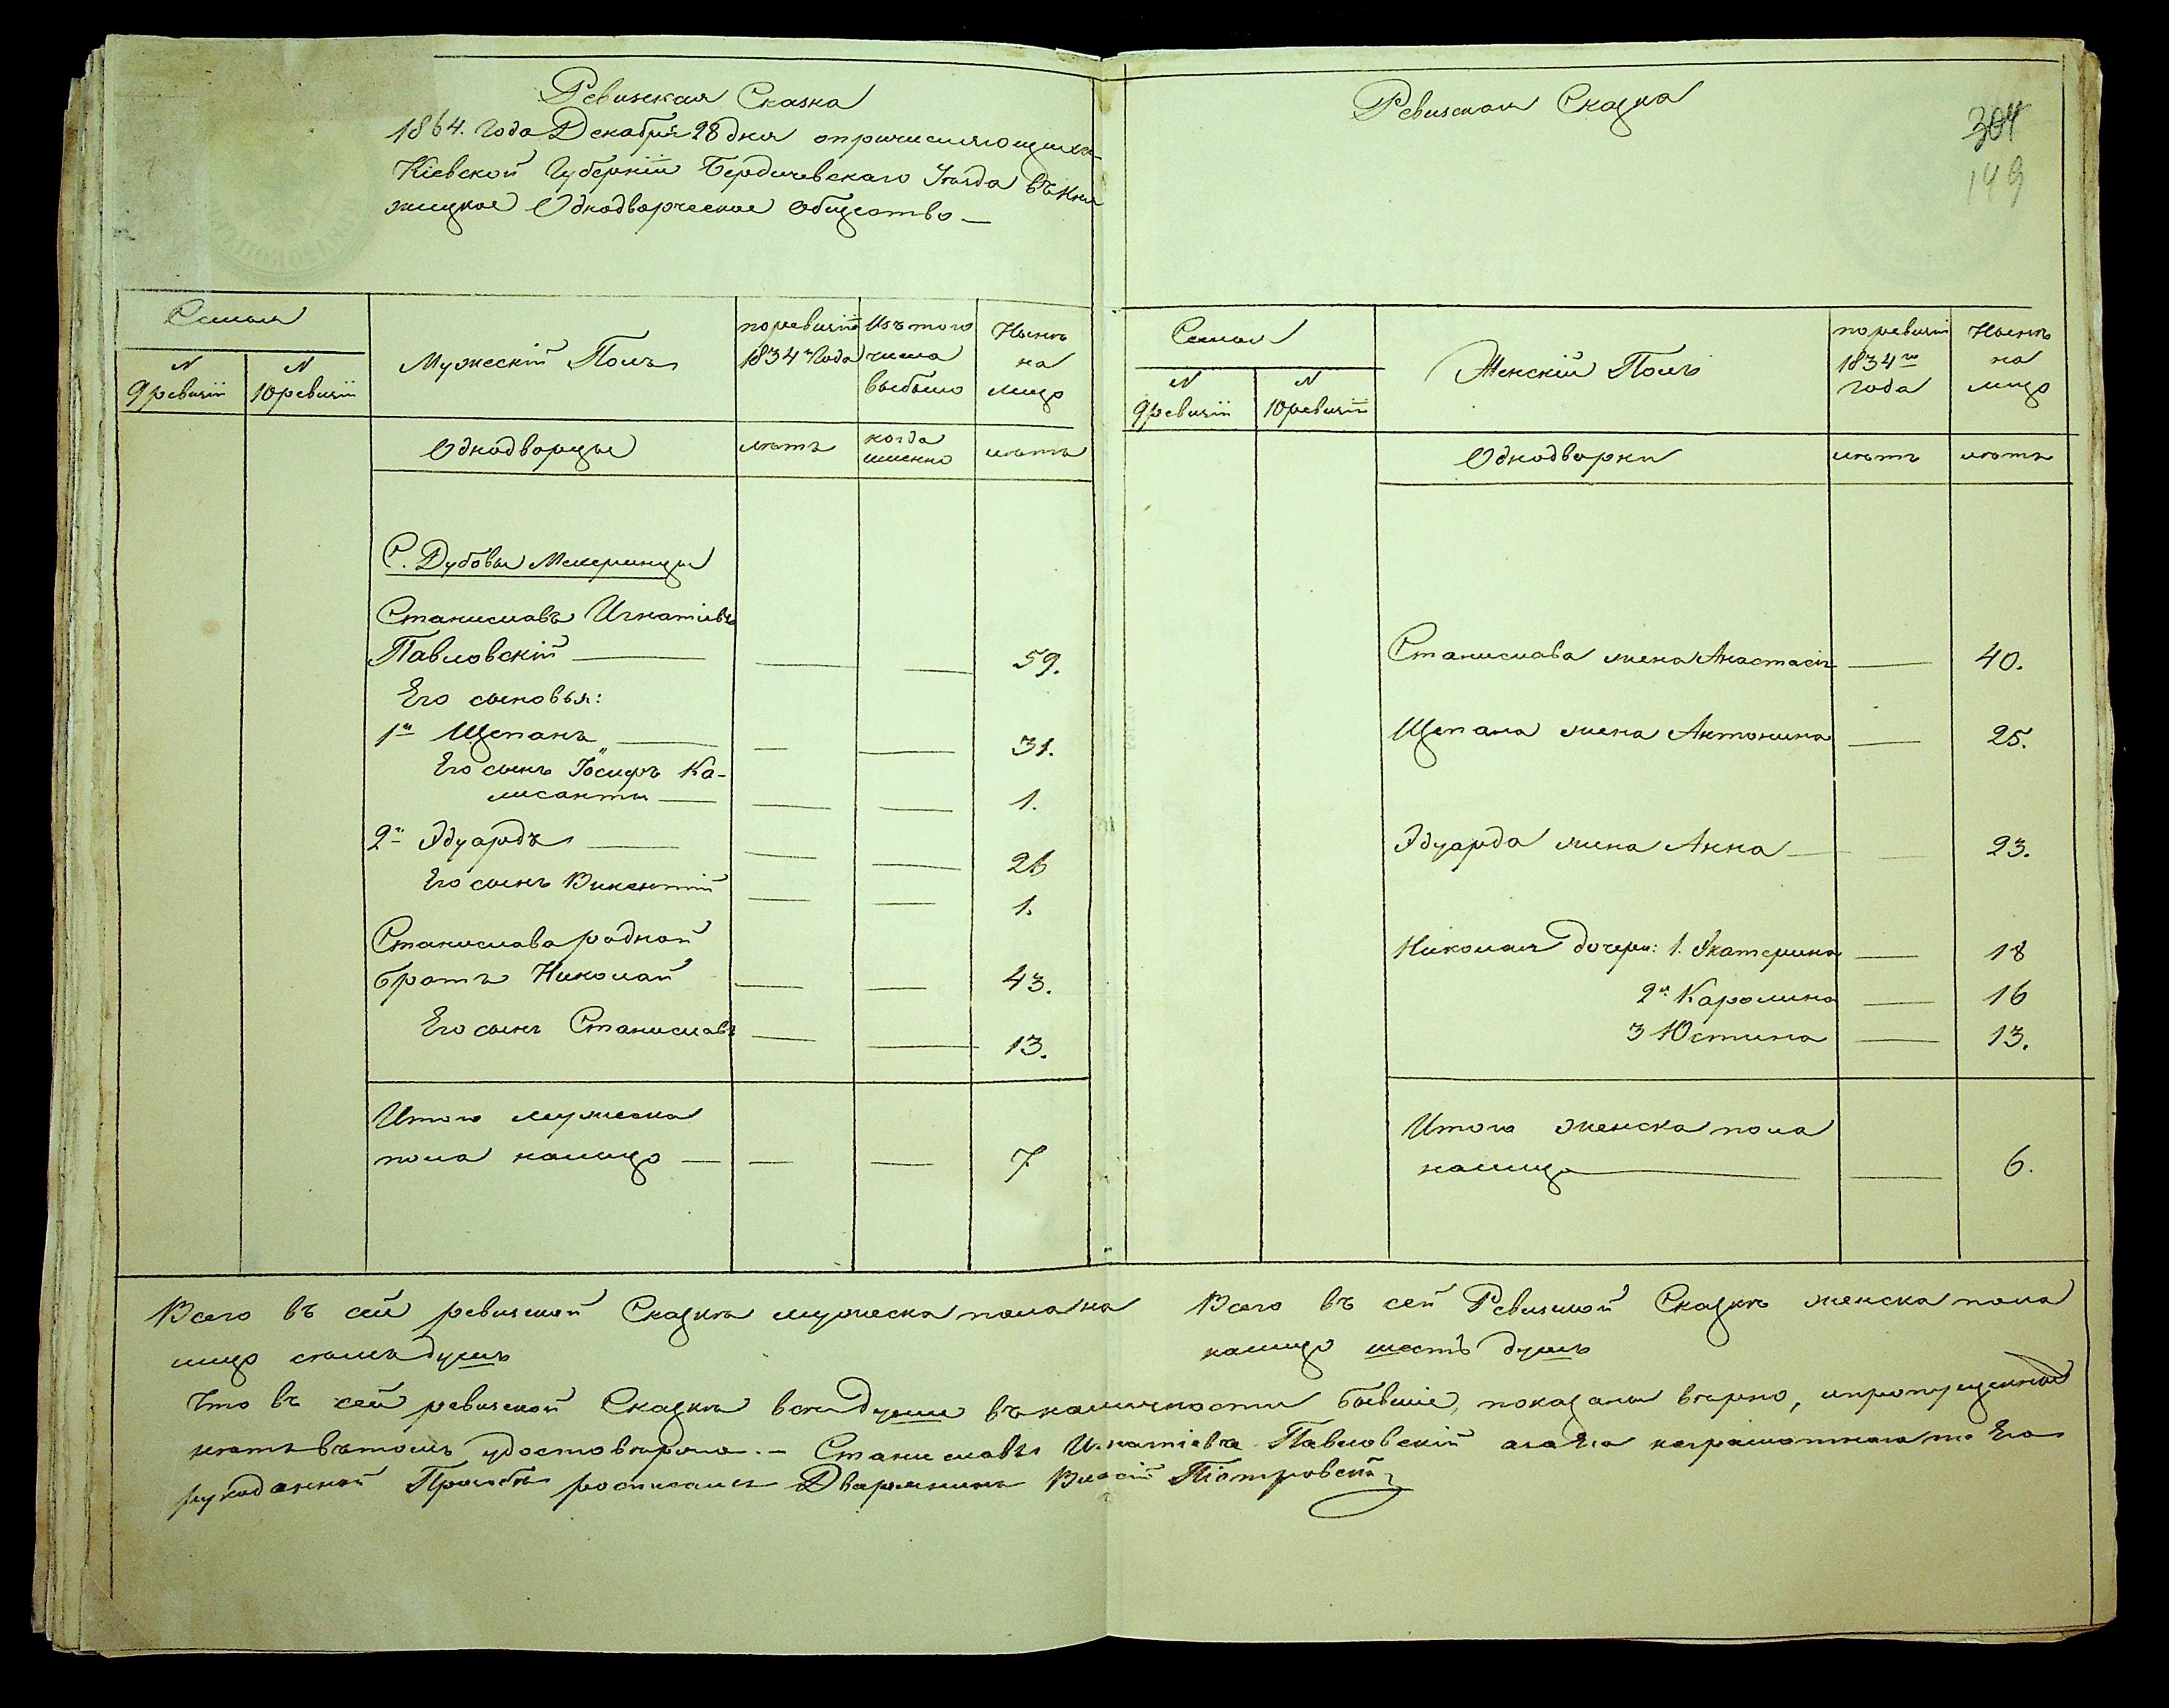 Ревизская Сказка
1864. Года Декабря 28 дня о причисляющихся
Кіевской Губерніи Бердичевскаго Уезда въ Кня
жицкое Однодворческое Общество —
Семья
N
9 ревизіи
N
10 ревизіи
Мужескій Полъ
по ревизіи
1834 Года
Изъ того
числа
выбыло
Нынѣ
на
лицо
Однодворцы
лѣтъ
когда
именно
лѣтъ
С. Дубовы Мехеринцы
Станиславъ Игнатіевъ
Павловскій — — — 59.
Его сыновья:
1й Щепанъ — — — 31.
Его сынъ Іосифъ Ка-
лисанты — — — 1.
2й Эдуардъ — — — 26
Его сынъ Викентий — — 1.
Станислава родной
братъ Николай — — 43.
Его сынъ Станиславъ — — 13.
Итого мужеска
пола налицо — — — 7
Всего въ сей ревизской Сказкѣ мужеска пола на
лицо семь душъ
Ревизская Сказка
304
149
Семья
N
9 ревизіи
N
10 ревизіи
Женскій Полъ
по ревизіи
1834 го
года
Нынѣ
на
лицо
Однодворки
лѣтъ
лѣтъ
Станислава жена Анастасія — 40.
Щепана жена Антонина — 25.
Эдуарда жена Анна — — 23.
Николая дочери: 1. Екатерина — 18
2я Каролина — 16
3 Юстина — 13.
Итого женска пола
налицо — — 6.
Всего въ сей Ревизской Сказкѣ женска пола
налицо шесть душъ
Что въ сей ревизской Сказкѣ все души въ наличности бывшіе, показаны верно, и пропущенной
нетъ въ томъ удостоверяю. — Станиславъ Игнатіевъ Павловскій а за Его неграмотнаго по Его
рукоданной Прозьбѣ росписался Дворянинъ Піотровскій